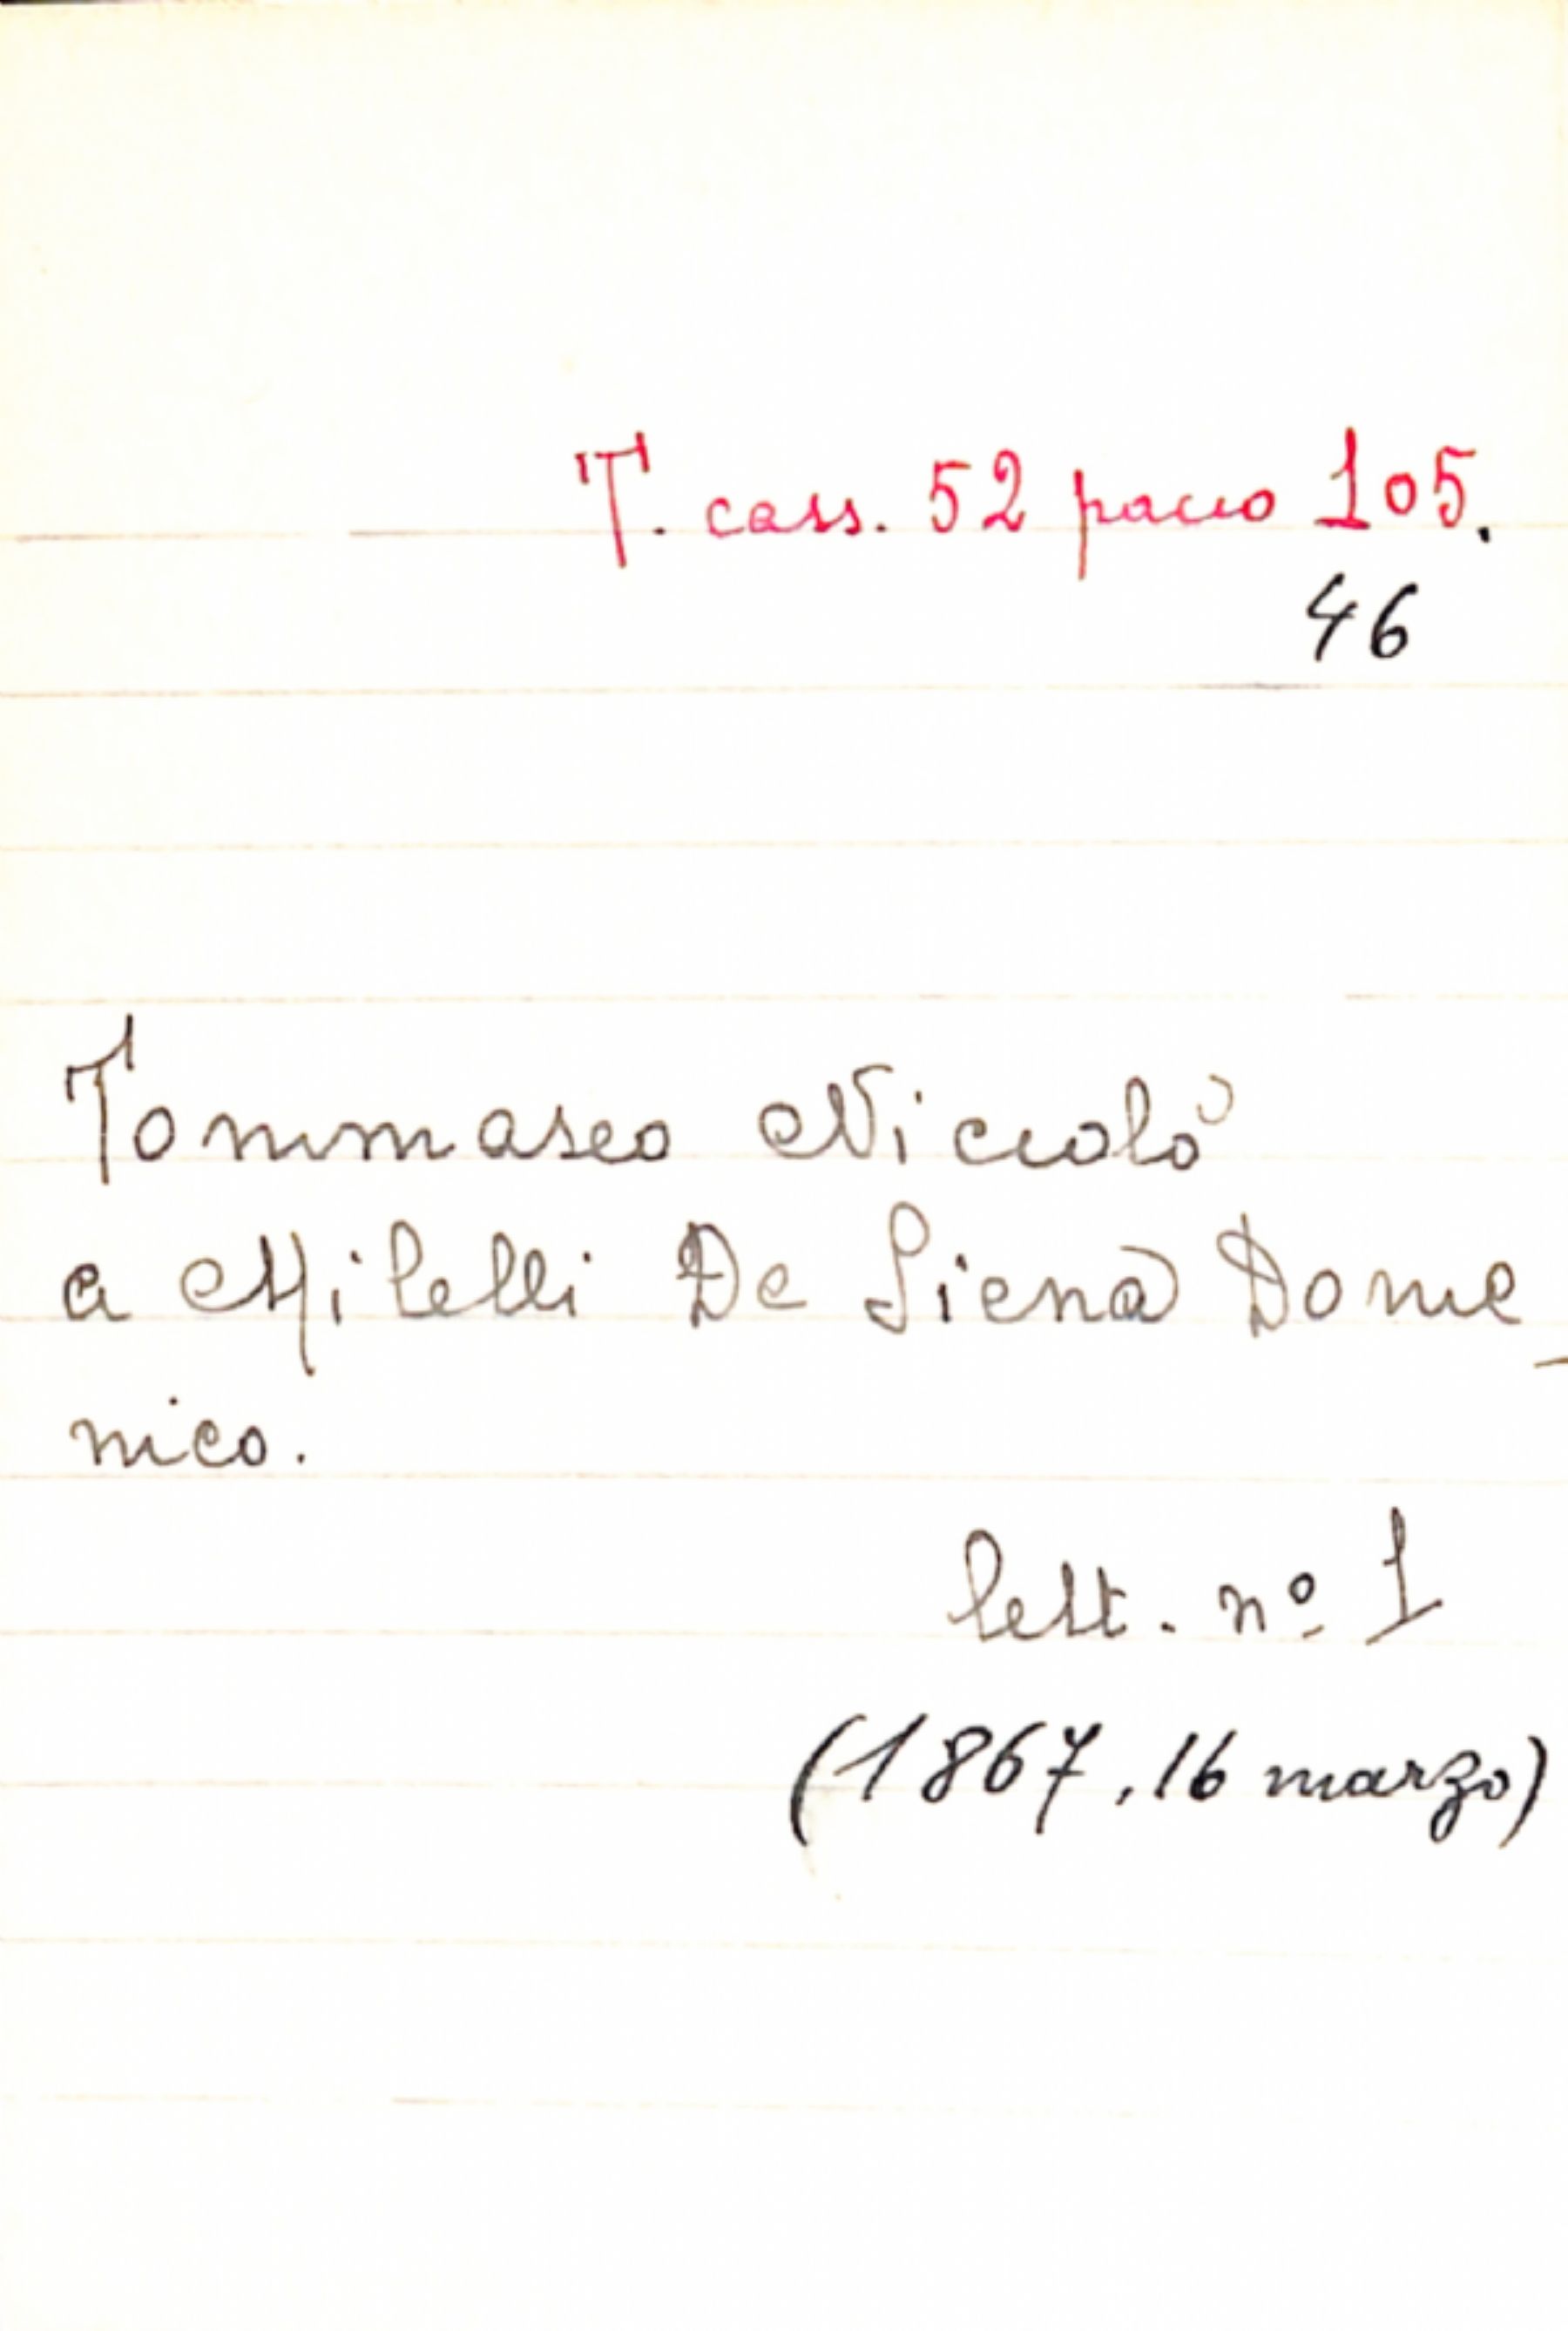 T. cass. 52 pacco 105.
46
Tommaseo Niccolò
a Milelli De Siena Dome_
nico.
lett. nº 1
(1867, 16 marzo)